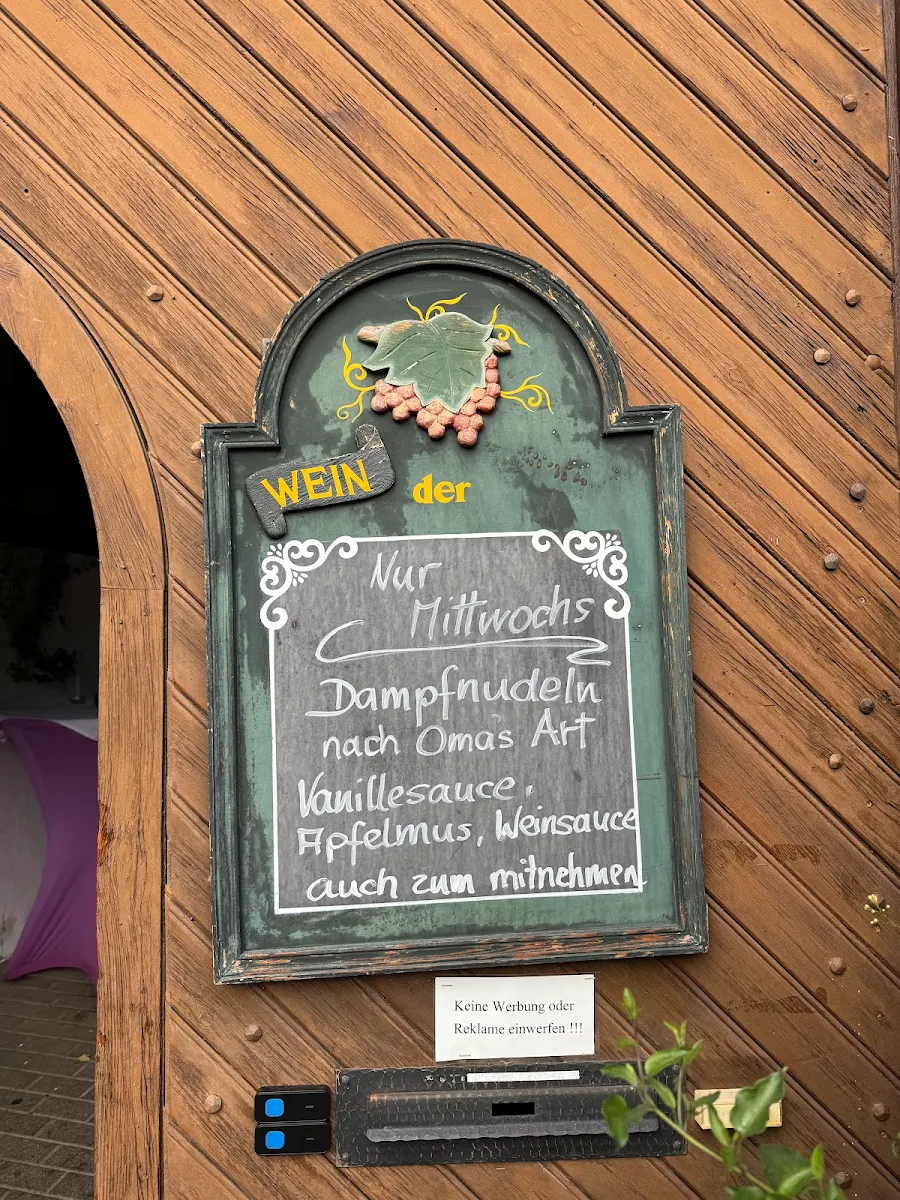 WEIN der
Nur
Mittwochs
Dampfnudeln
nach Omas Art
Vanillesauce,
Apfelmus, Weinsauce
auch zum mitnehmen
Keine Werbung oder
Reklame einwerfen !!!